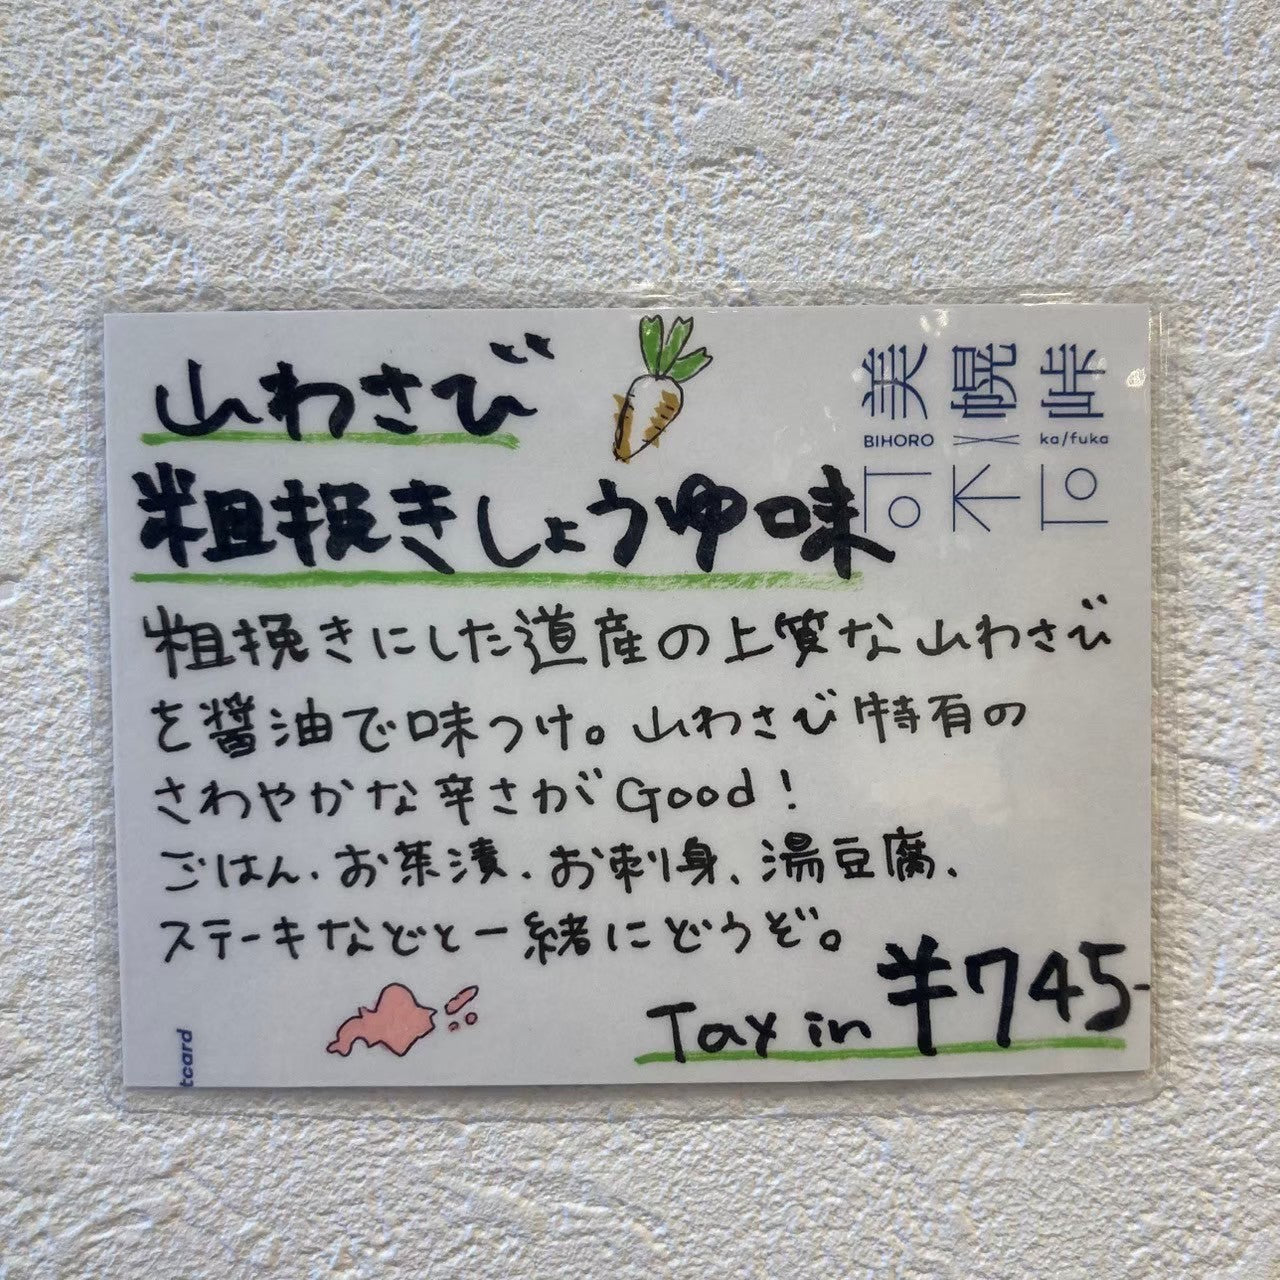 山わさび
粗挽きしょうゆ味
美幌峠
BIHORO ka/fuka
粗挽きにした道産の上質な山わさび
を醤油で味つけ。山わさび特有の
さわやかな辛さがGood!
ごはん、お茶漬、お刺身、湯豆腐、
ステーキなどと一緒にどうぞ。
Tax in ¥745-
tcard